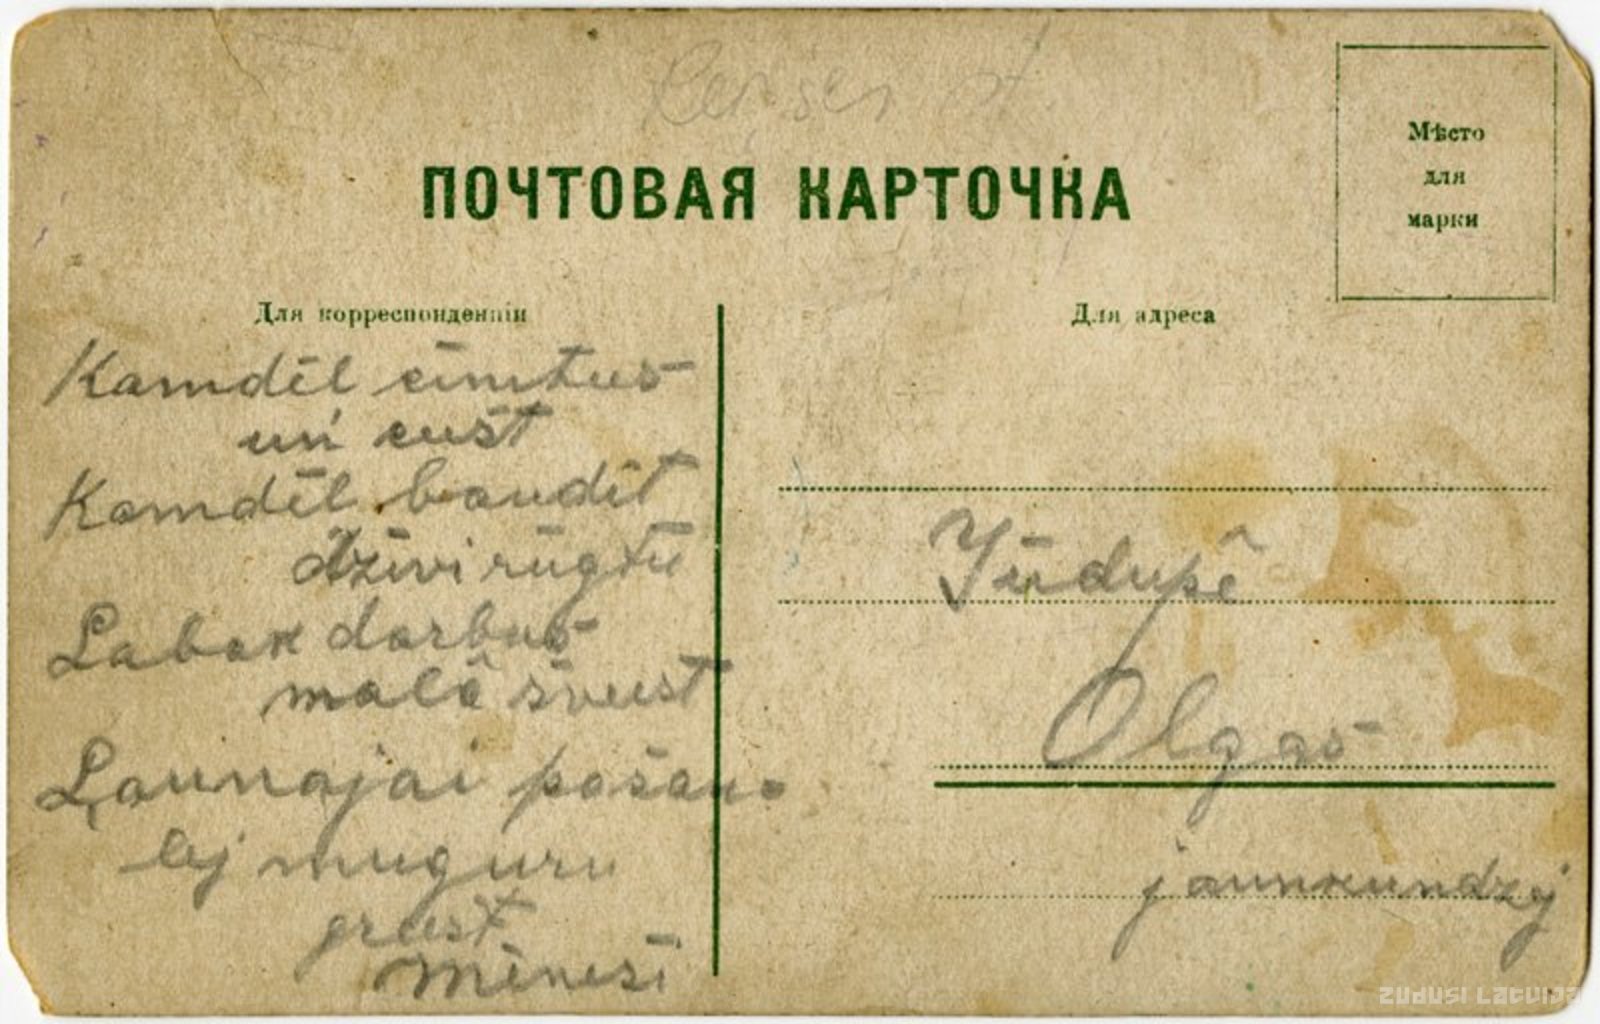 ПОЧТОВАЯ КАРТОЧКА
Мѣсто
для
марки
Для корреспонденціи
Kamdēl cīnitus
un cust
Kamdēl baudīt
dzīvi rūgtu
Labak darbus
malā sviest
Launajai pašau
ej muguru
griest
Mēnesi
Для адреса
Jūdupē
Olgas
jaunkundzej
ZUDUSI LATVIJA